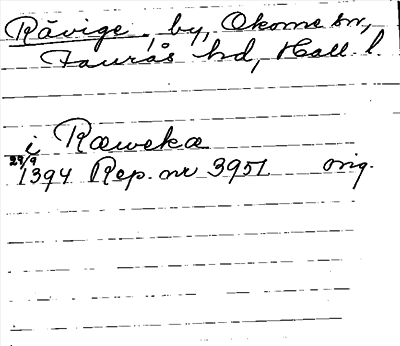 Rävige, by, Okome sn,
Faurås hd, Hall. l.
i Ræwekæ
29/9
1394 Rep. nr 3951 orig.